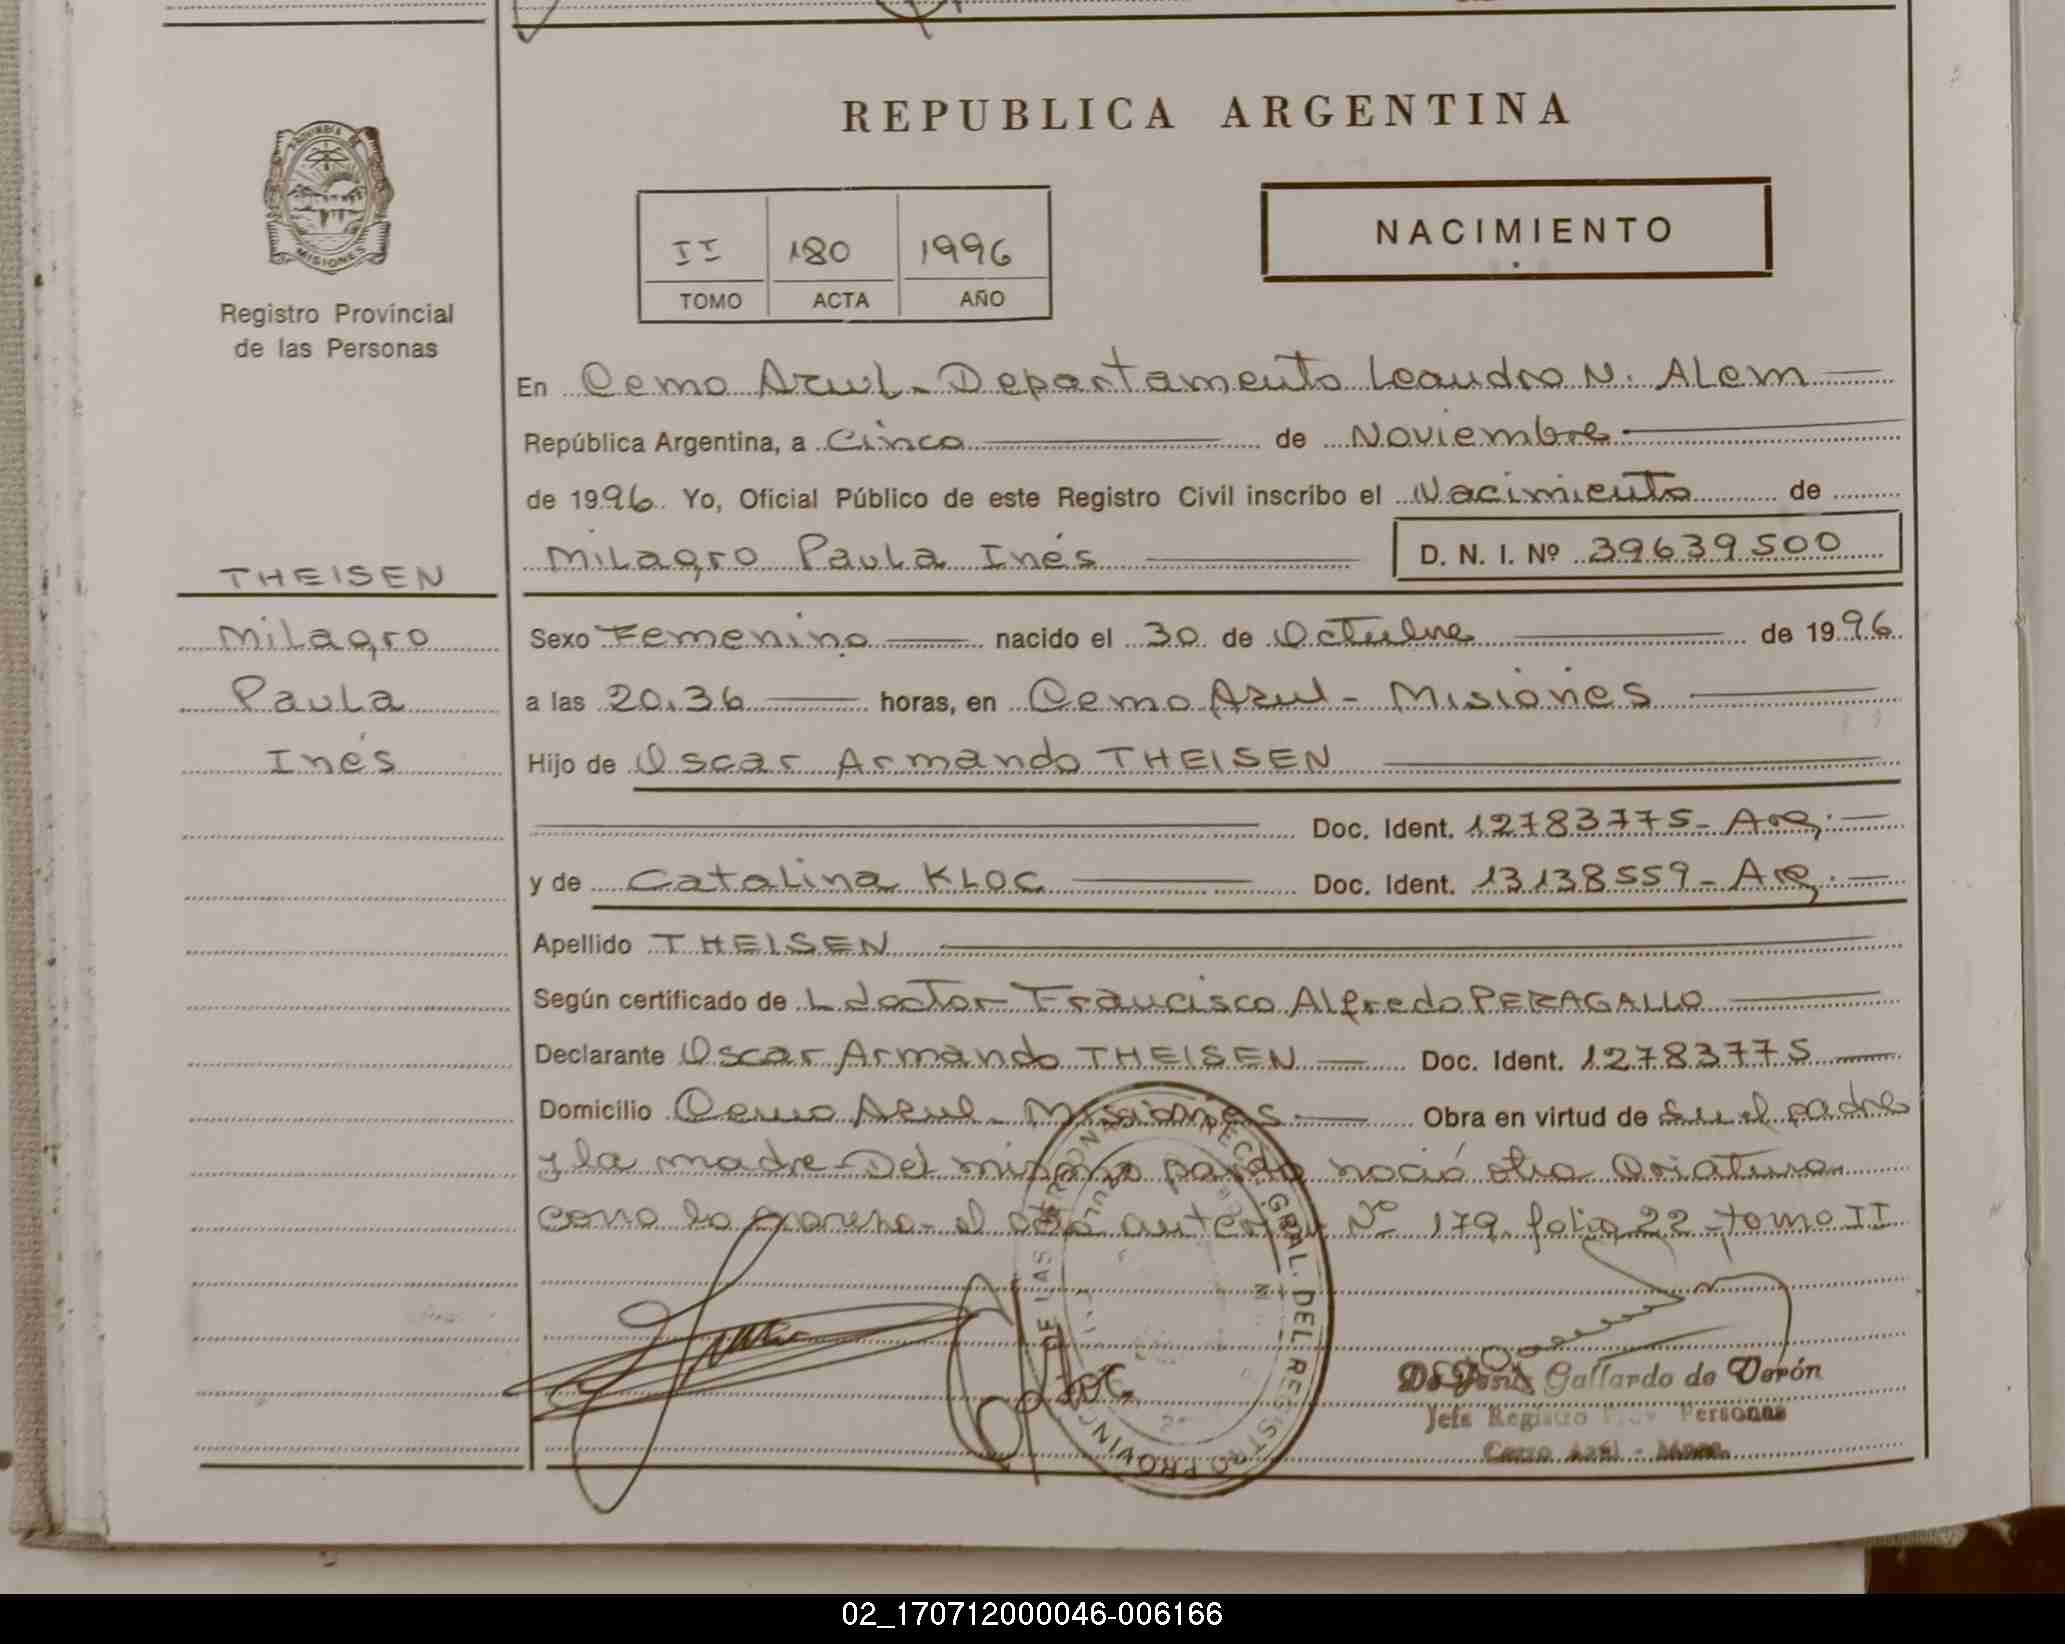 REPUBLICA ARGENTINA
PROVINCIA DE
MISIONES
Registro Provincial
de las Personas
II 180 1996
TOMO ACTA AÑO
NACIMIENTO
En Cerro Azul - Departamento Leandro N. Alem
República Argentina, a Cinco de Noviembre
de 1996. Yo, Oficial Público de este Registro Civil inscribo el Nacimiento de
Milagro Paula Inés D. N. I. Nº 39639500
THEISEN
Milagro
Paula
Inés
Sexo Femenino nacido el 30 de Octubre de 1996.
a las 20,36 horas, en Cerro Azul - Misiones
Hijo de Oscar Armando THEISEN
Doc. Ident. 12783775 - Arg.
y de Catalina KLOC Doc. Ident. 13138559 - Arg.
Apellido THEISEN
Según certificado de L doctor Francisco Alfredo PERAGALLO
Declarante Oscar Armando THEISEN Doc. Ident. 12783775
Domicilio Cerro Azul - Misiones Obra en virtud de Su el padre
y la madre - Del mismo parto nació otra Criatura
como lo expresa el acta anterior Nº 179 folio 22 - tomo II
DIREC. GRAL. DEL REGISTRO PROVINC. DE LAS PERSONAS
Kloc
Gallardo de Verón
Jefe Registro Prov. Personas
Cerro Azul - Mnes.
02_170712000046-006166